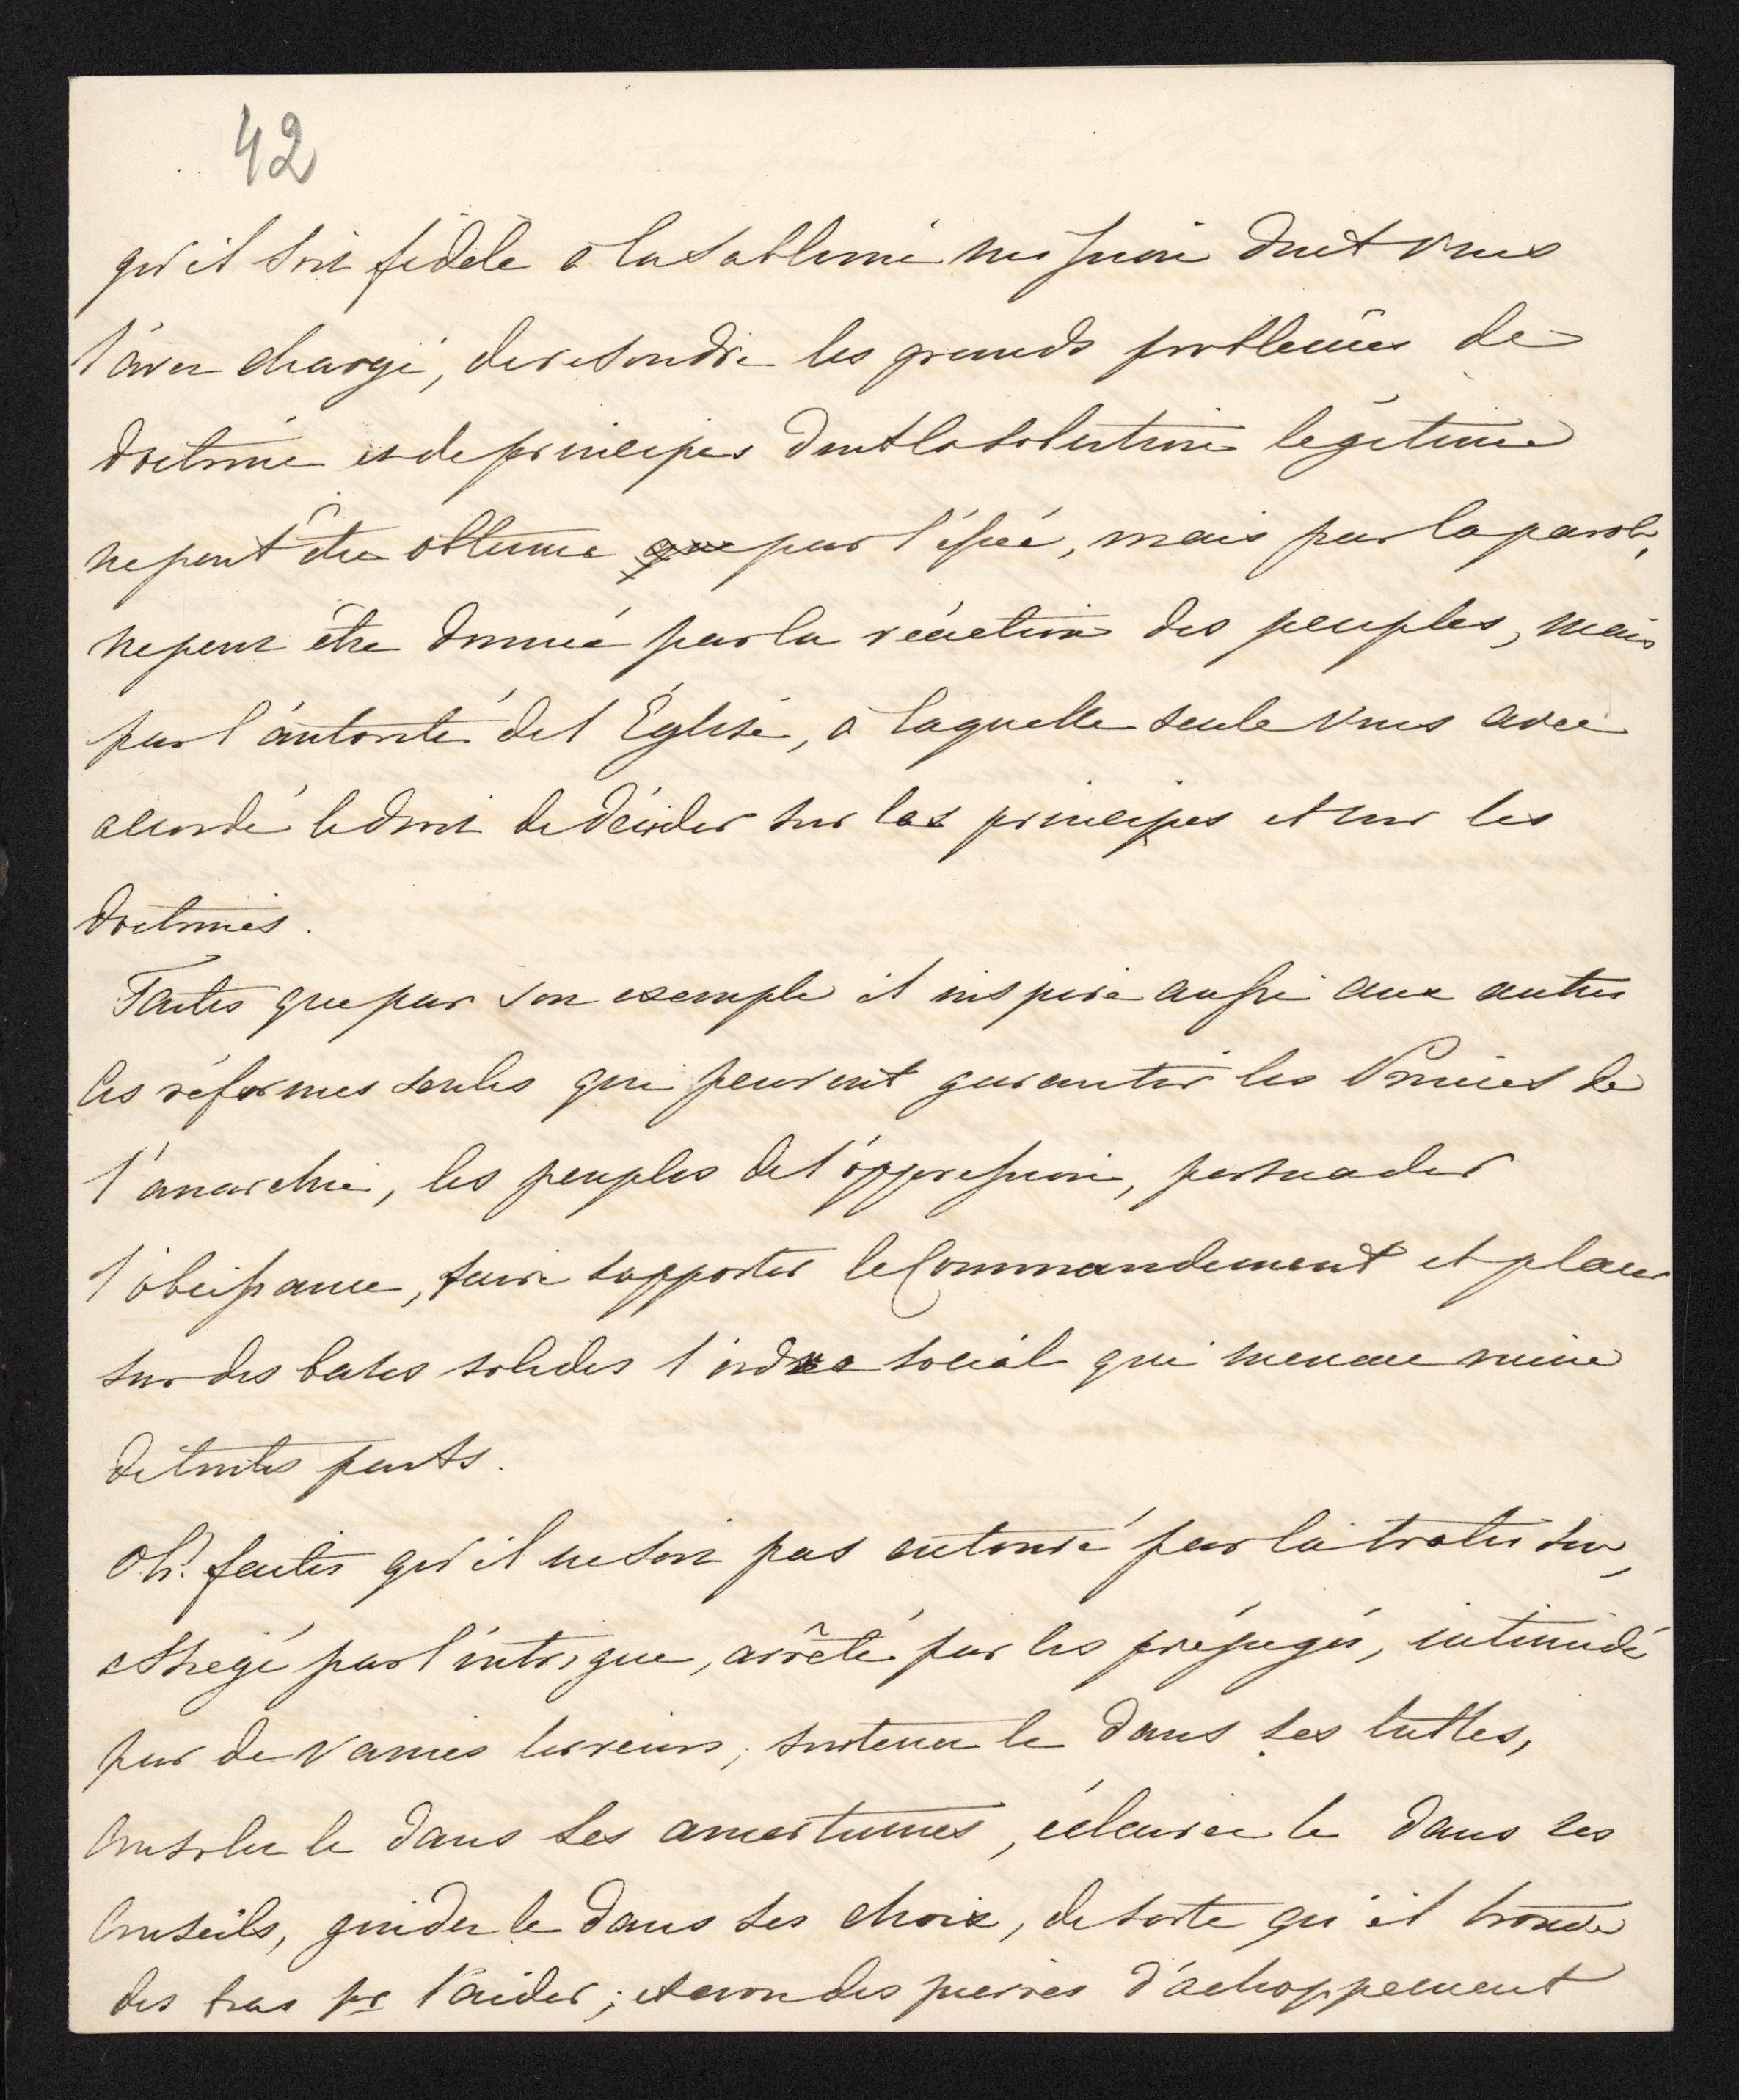 42
qu'il soit fidèle a la sublime mission dont vous
l'avez chargé, de resoudre les grands problèmes de
doctrine et de principes dont la solution légitime
ne peut être obtenue que par l'épée, mais par la parole,
ne peut être donnée par la réaction des peuples, mais
par l'autorité de l'Église, a laquelle seule vous avez
accordé le droit de décider sur les principes et sur les
doctrines.
Faites que par son exemple il inspire aussi aux autres
les réformes seules qui peuvent garantir les Princes de
l'anarchie, les peuples de l'oppression, persuader
l'obeissance, faire supporter le Commandement et placer
sur des bases solides l'ordre social qui menace ruine
de toutes parts.
Oh! faites qu'il ne soit pas entouré par la trahison,
assiegé par l'intrigue, arrêté par les préjugés, intimidé
par de vaines terreurs; soutenez le dans ses luttes,
Consolez le dans ses amertumes, éclairez le dans ses
Conseils, guidez le dans ses choix, de sorte qu'il trouve
des bras pr l'aider; et non des pierres d'achoppement